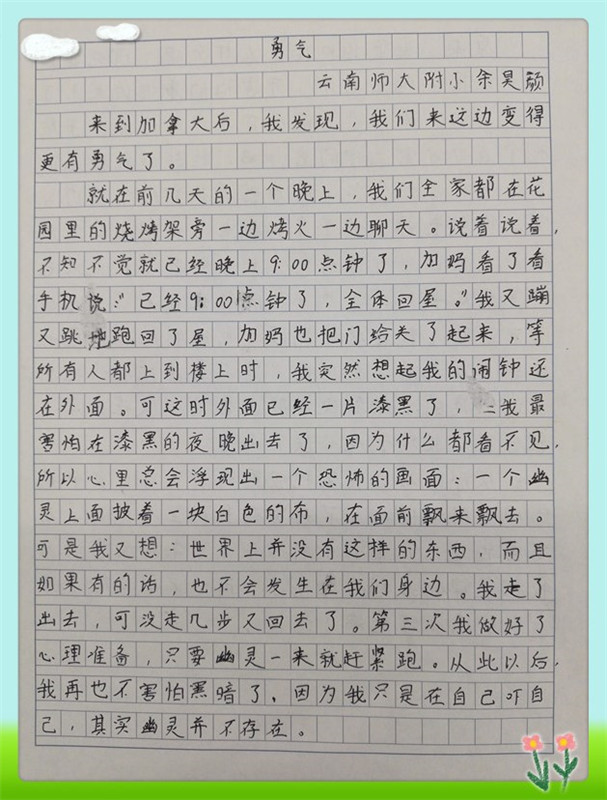 勇气
云南师大附小余昊颜
来到加拿大后，我发现，我们来这边变得
更有勇气了。
就在前几天的一个晚上，我们全家都在花
园里的烧烤架旁一边烤火一边聊天。说着说着，
不知不觉就已经晚上9:00点钟了，加妈看了看
手机说：“已经9:00点钟了，全体回屋。”我又蹦
又跳地跑回了屋，加妈也把门给关了起来，等
所有人都上到楼上时，我突然想起我的闹钟还
在外面。可这时外面已经一片漆黑了，我最
害怕在漆黑的夜晚出去了，因为什么都看不见，
所以心里总会浮现出一个恐怖的画面：一个幽
灵上面披着一块白色的布，在面前飘来飘去。
可是我又想：世界上并没有这样的东西，而且
如果有的话，也不会发生在我们身边。我走了
出去，可没走几步又回去了。第三次我做好了
心理准备，只要幽灵一来就赶紧跑。从此以后，
我再也不害怕黑暗了，因为我只是在自己吓自
己，其实幽灵并不存在。